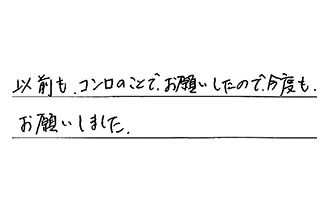 以前も、コンロのことで、お願いしたので、今度も、
お願いしました。